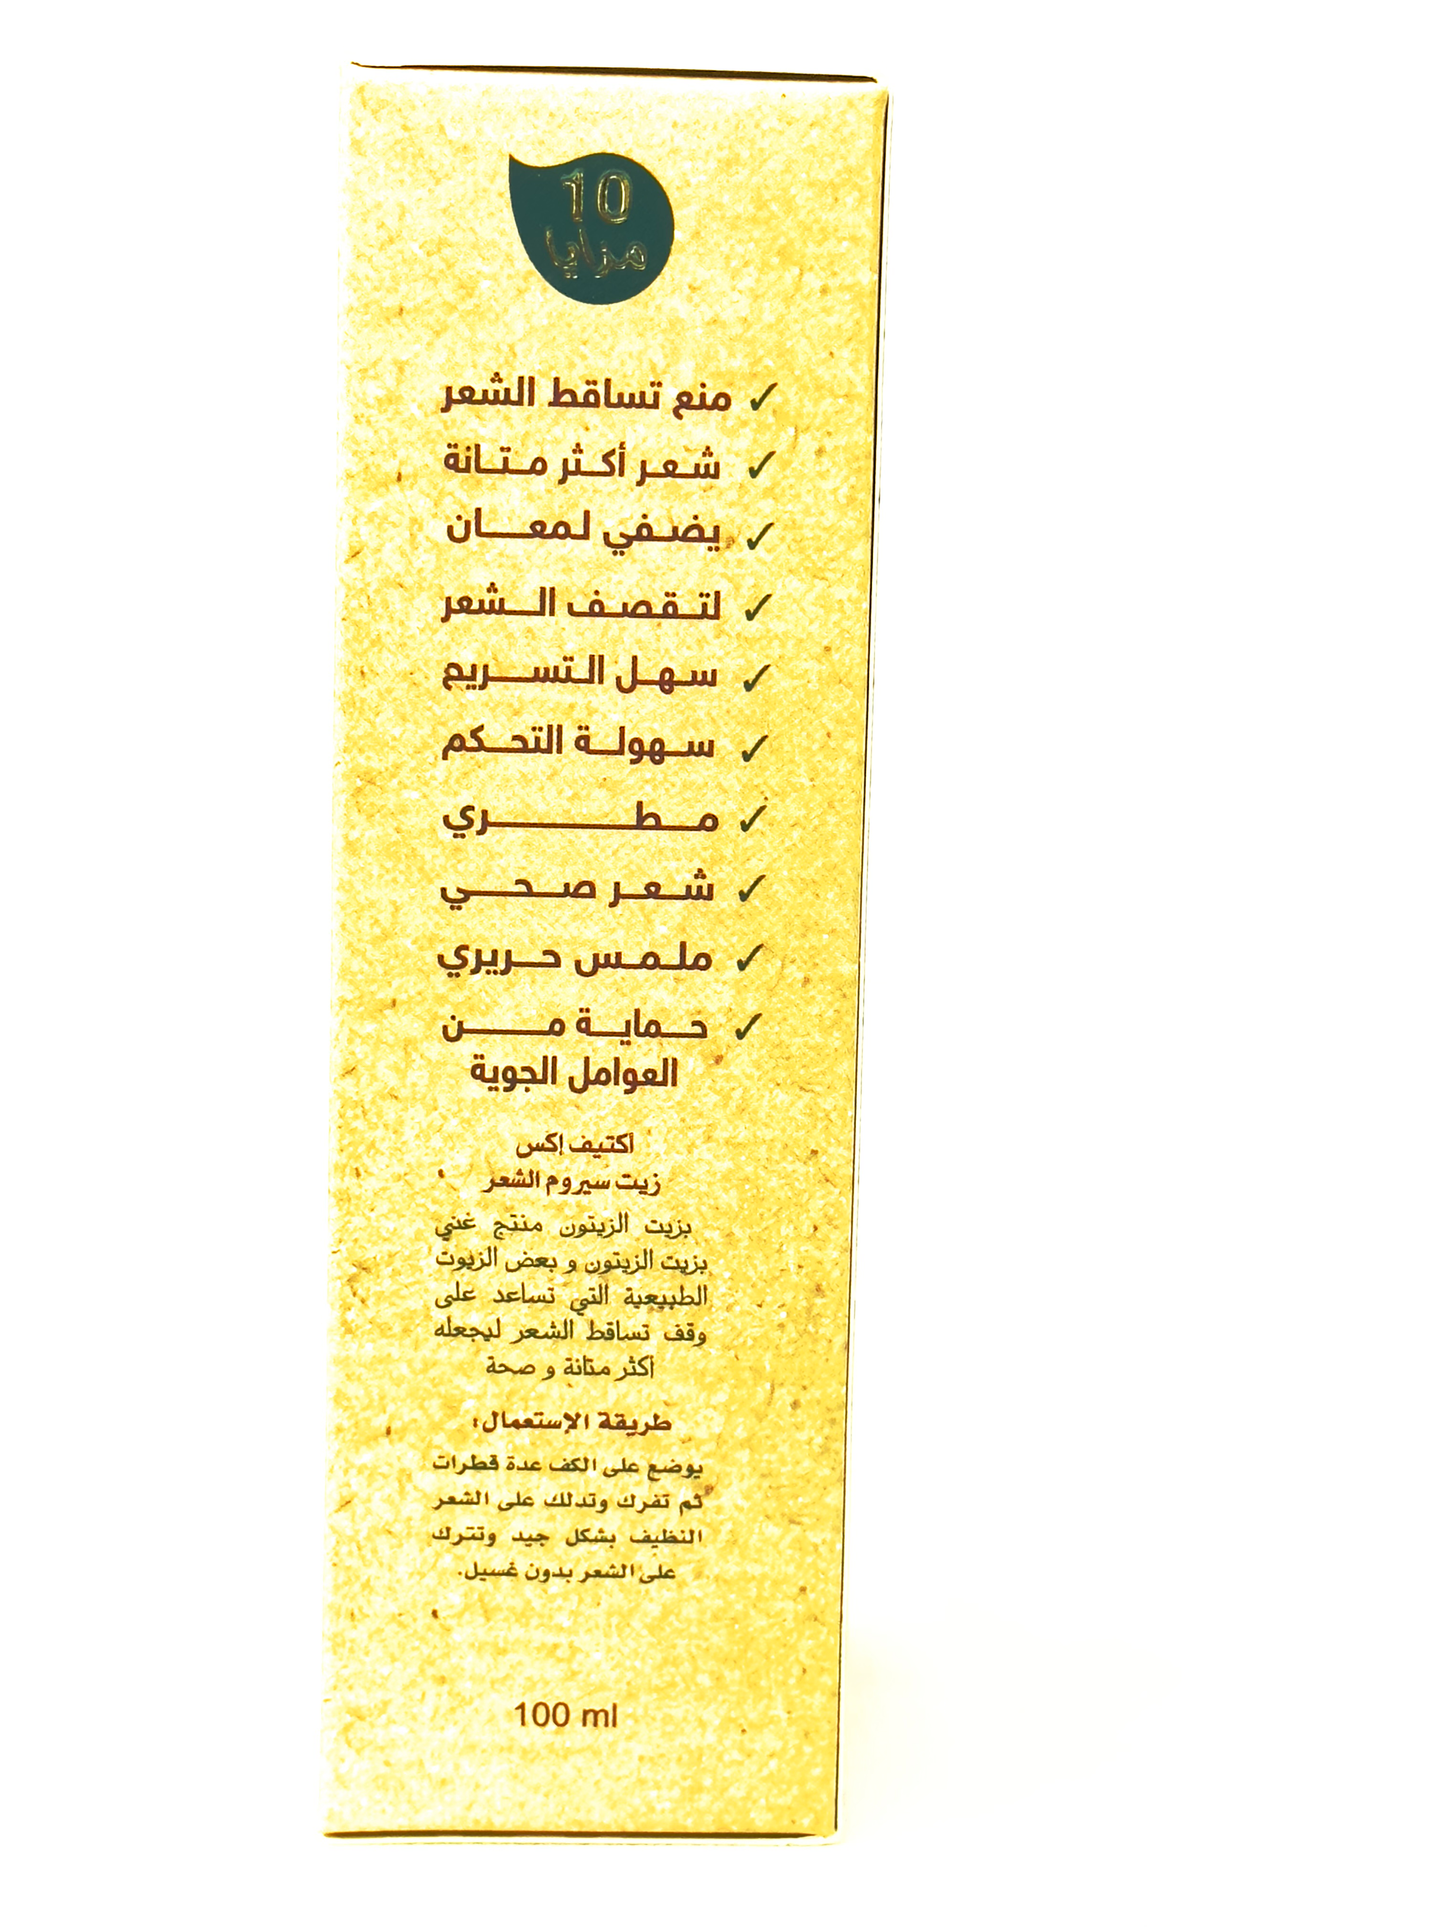 10
مزايا
✓ منع تساقط الشعر
✓ شعر أكثر متانة
✓ يضفي لمعان
✓ لتقصف الشعر
✓ سهل التسريح
✓ سهولة التحكم
✓ مطري
✓ شعر صحي
✓ ملمس حريري
✓ حماية من
العوامل الجوية
أكتيف إكس
زيت سيروم الشعر
بزيت الزيتون منتج غني
بزيت الزيتون و بعض الزيوت
الطبيعية التي تساعد على
وقف تساقط الشعر ليجعله
أكثر متانة و صحة
طريقة الإستعمال:
يوضع على الكف عدة قطرات
ثم تفرك وتدلك على الشعر
النظيف بشكل جيد وتترك
على الشعر بدون غسيل.
100 ml